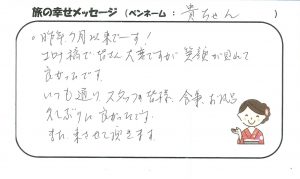 旅の幸せメッセージ (ペンネーム: 貴ちゃん )
。昨年7月以来でーす!
コロナ禍で皆さん大変ですが笑顔が見れて
良かったです。
いつも通りスタッフの皆様、食事、お風呂
久しぶりに良かったです。
また来させて頂きます。